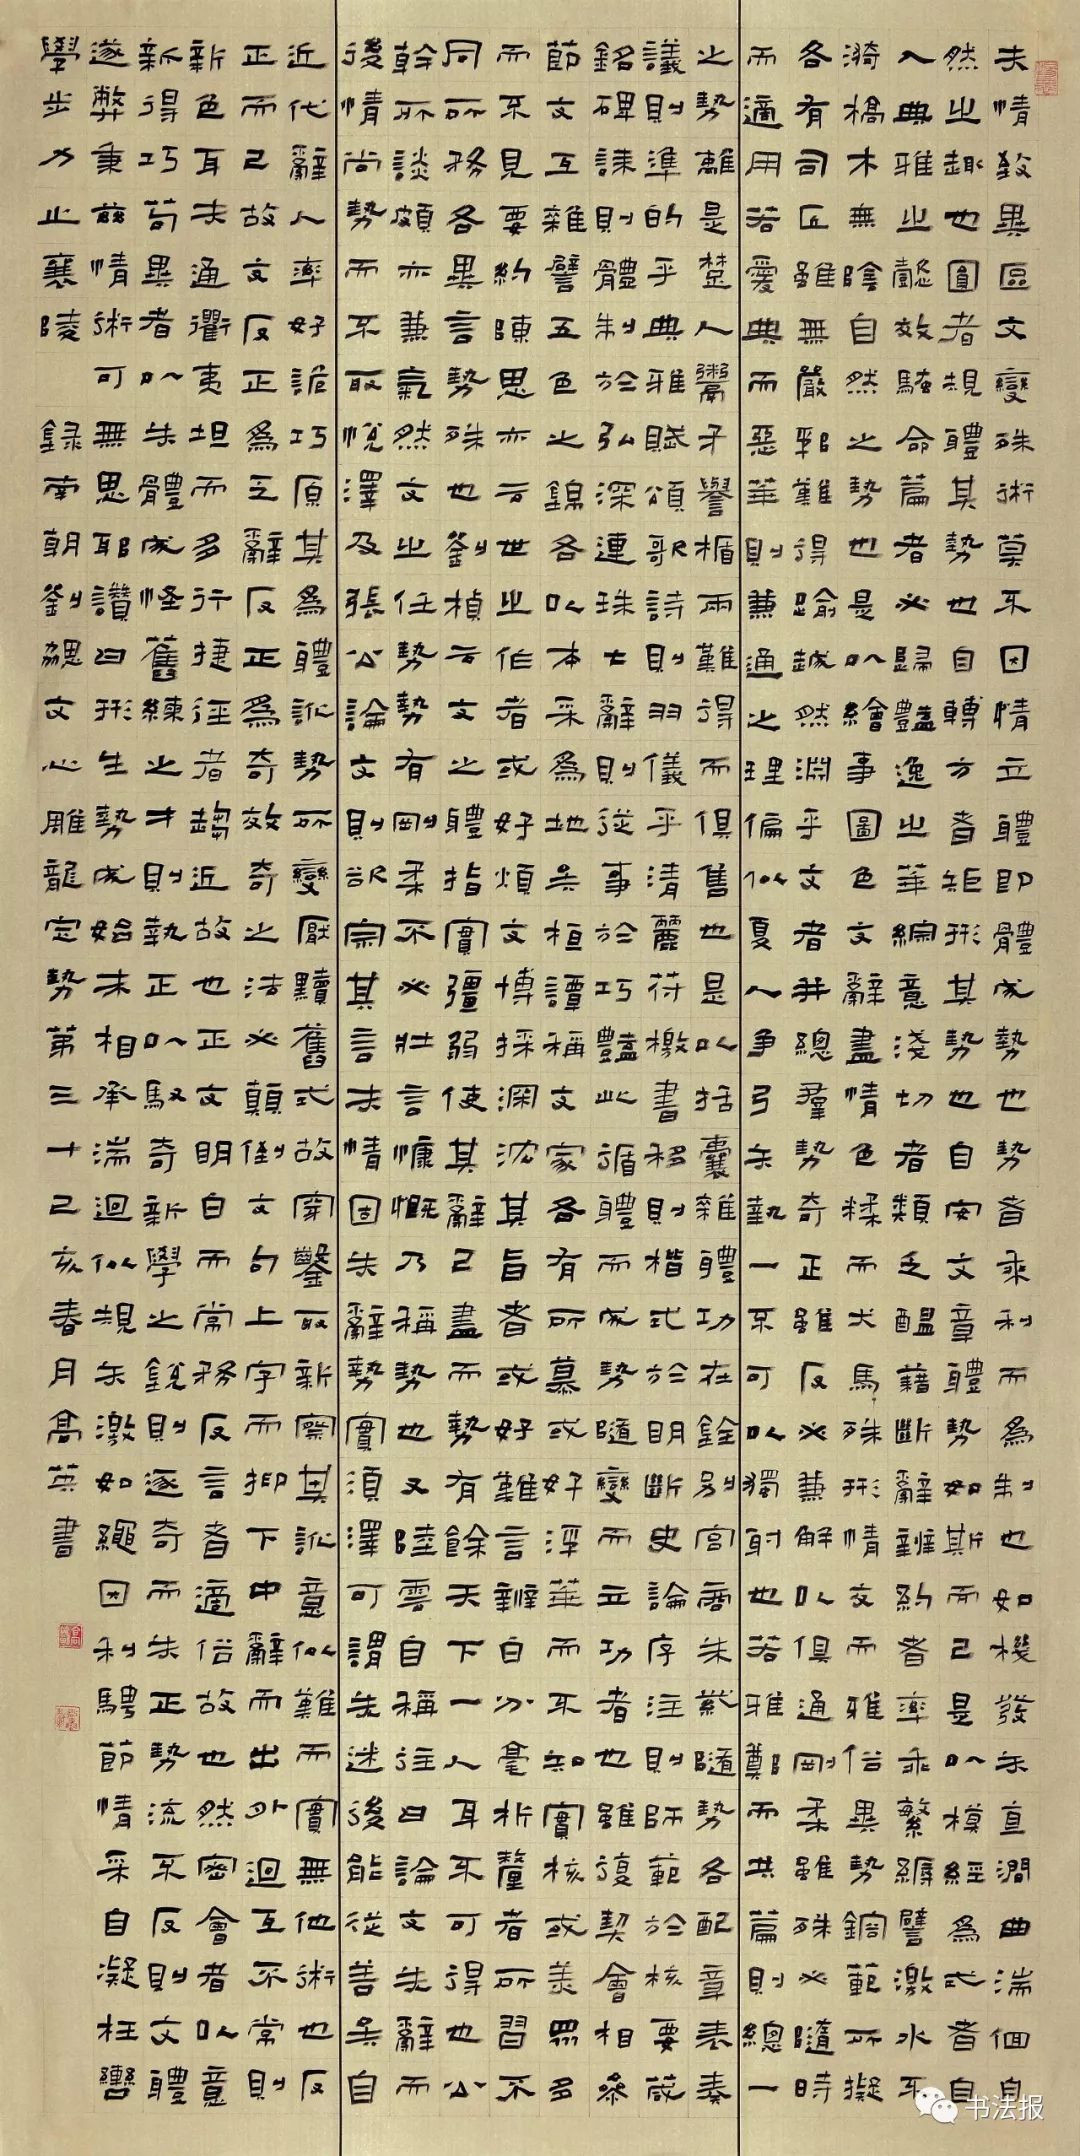 夫情致異區文變殊術莫不因情立體即體成勢也勢者乘利而為制也如機發矢直澗曲湍回自
然之趣也圓者規體其勢也自轉方者矩形其勢也自安文章體勢如斯而已是以模經為式者自
入典雅之懿效騷命篇者必歸豔逸之華綜意淺切者類乏醞藉斷辭辨約者率乖繁縟譬激水不
漪槁木無陰自然之勢也是以繪事圖色文辭盡情色糅而犬馬殊形情交而雅俗異勢鎔範所擬
各有司匠雖無嚴郛難得踰越然淵乎文者并總羣勢奇正雖反必兼解以俱通剛柔雖殊必隨時
而適用若愛典而惡華則兼通之理偏似夏人爭弓矢執一不可以獨射也若雅鄭而共篇則總一
之勢離是楚人鬻矛譽楯兩難得而俱售也是以括囊雜體功在銓別宮商朱紫隨勢各配章表奏
議則準的乎典雅賦頌歌詩則羽儀乎清麗符檄書移則楷式於明斷史論序注則師範於核要箴
銘碑誄則體制於弘深連珠七辭則從事於巧豔此循體而成勢隨變而立功者也雖復契會相參
節文互雜譬五色之錦各以本采為地矣桓譚稱文家各有所慕或好浮華而不知實核或美眾多
而不見要約陳思亦云世之作者或好煩文博採深沈其旨者或好離言辨白分毫析釐者所習不
同所務各異言勢殊也劉楨云文之體指實彊弱使其辭已盡而勢有餘天下一人耳不可得也公
幹所談頗亦兼氣然文之任勢勢有剛柔不必壯言慷慨乃稱勢也又陸雲自稱往日論文先辭而
後情尚勢而不取悅澤及張公論文則欲宗其言夫情固先辭勢實須澤可謂先迷後能從善矣自
近代辭人率好詭巧原其為體訛勢所變厭黷舊式故穿鑿取新察其訛意似難而實無他術也反
正而已故文反正為乏辭反正為奇效奇之法必顛倒文句上字而抑下中辭而出外迴互不常則
新色耳夫通衢夷坦而多行捷徑者趨近故也正文明白而常務反言者適俗故也然密會者以意
新得巧苟異者以失體成怪舊練之才則執正以馭奇新學之銳則逐奇而失正勢流不反則文體
遂弊秉茲情術可無思耶讚曰形生勢成始末相承湍迴似規矢激如繩因利騁節情采自凝枉轡
學步力止襄陵 錄南朝劉勰文心雕龍定勢第三十己亥春月高英書
书法报